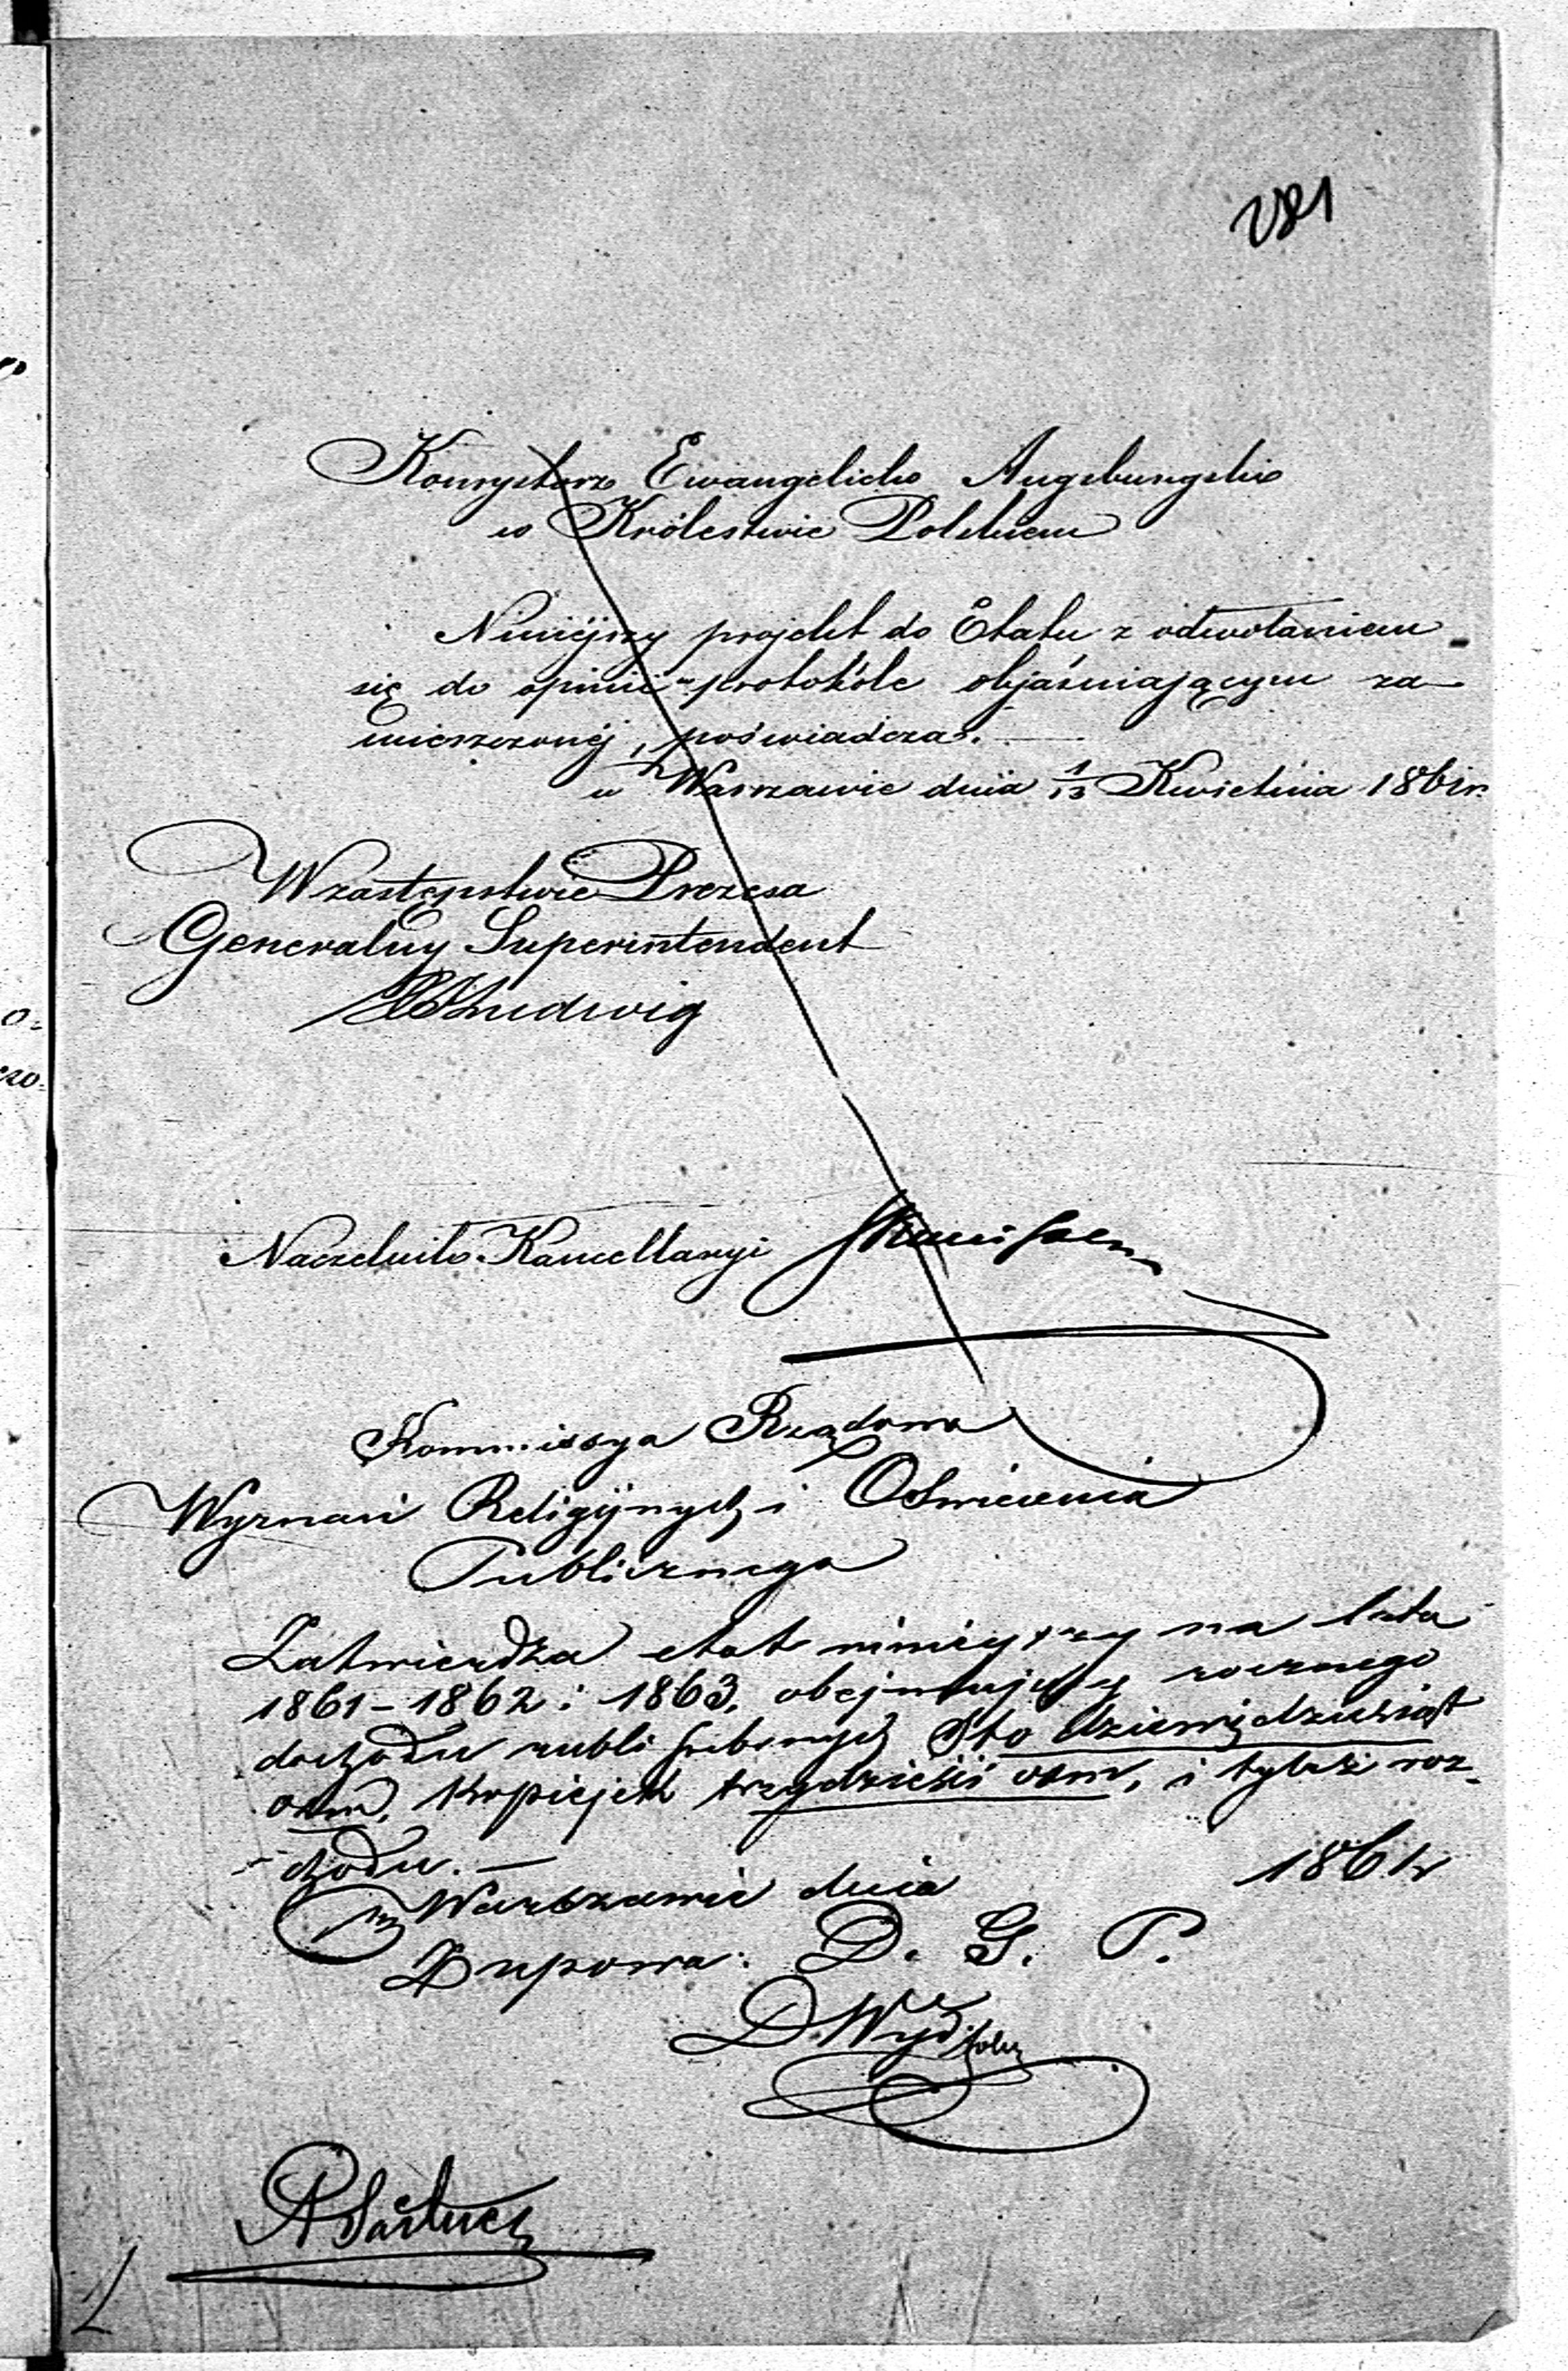 281
Konsystorz Ewangelicko Augsburgski
w Królestwie Polskiem
Niniéjszy projekt do Etatu z odwołaniem
się do opinii w protokóle objaśniającym za-
mieszczonéj, poświadcza.
w Warszawie dnia 1/13 Kwietnia 1861 r.
W zastępstwie Prezesa
Generalny Superintendent
Ludwig
Naczelnik Kancellaryi
Kommissya Rządowa
Wyznań Religijnych i Oświecenia
Publicznego
Zatwierdza etat niniejszy na lata
1861-1862 i 1863, obejmujący rocznego
dochodu rubli srebrnych Sto dziewięćdziesiąt
osm, kopiejek trzydzieści osm, i tyleż roz-
chodu. —
w Warszawie dnia 1861 r
D. G. P.